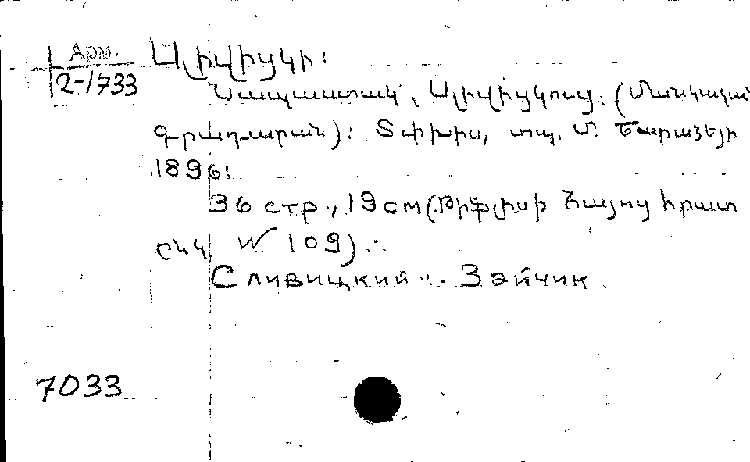 Арм.
2-1733
Սլիվիցկի։
Նապաստակ, Սլիվիցկուց. (Մանկական
գրադարան)։ Տփխիս, տպ. Մ. Շարաձէի
1896։
36 стр., 19 см (Թիֆլիսի Հայոց հրատ
ընկ № 109).
Сливицкий. Зайчик
7033